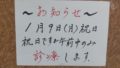 ～お知らせ～
1月9日(月)祝日
祝日ですが午前中のみ
診療します